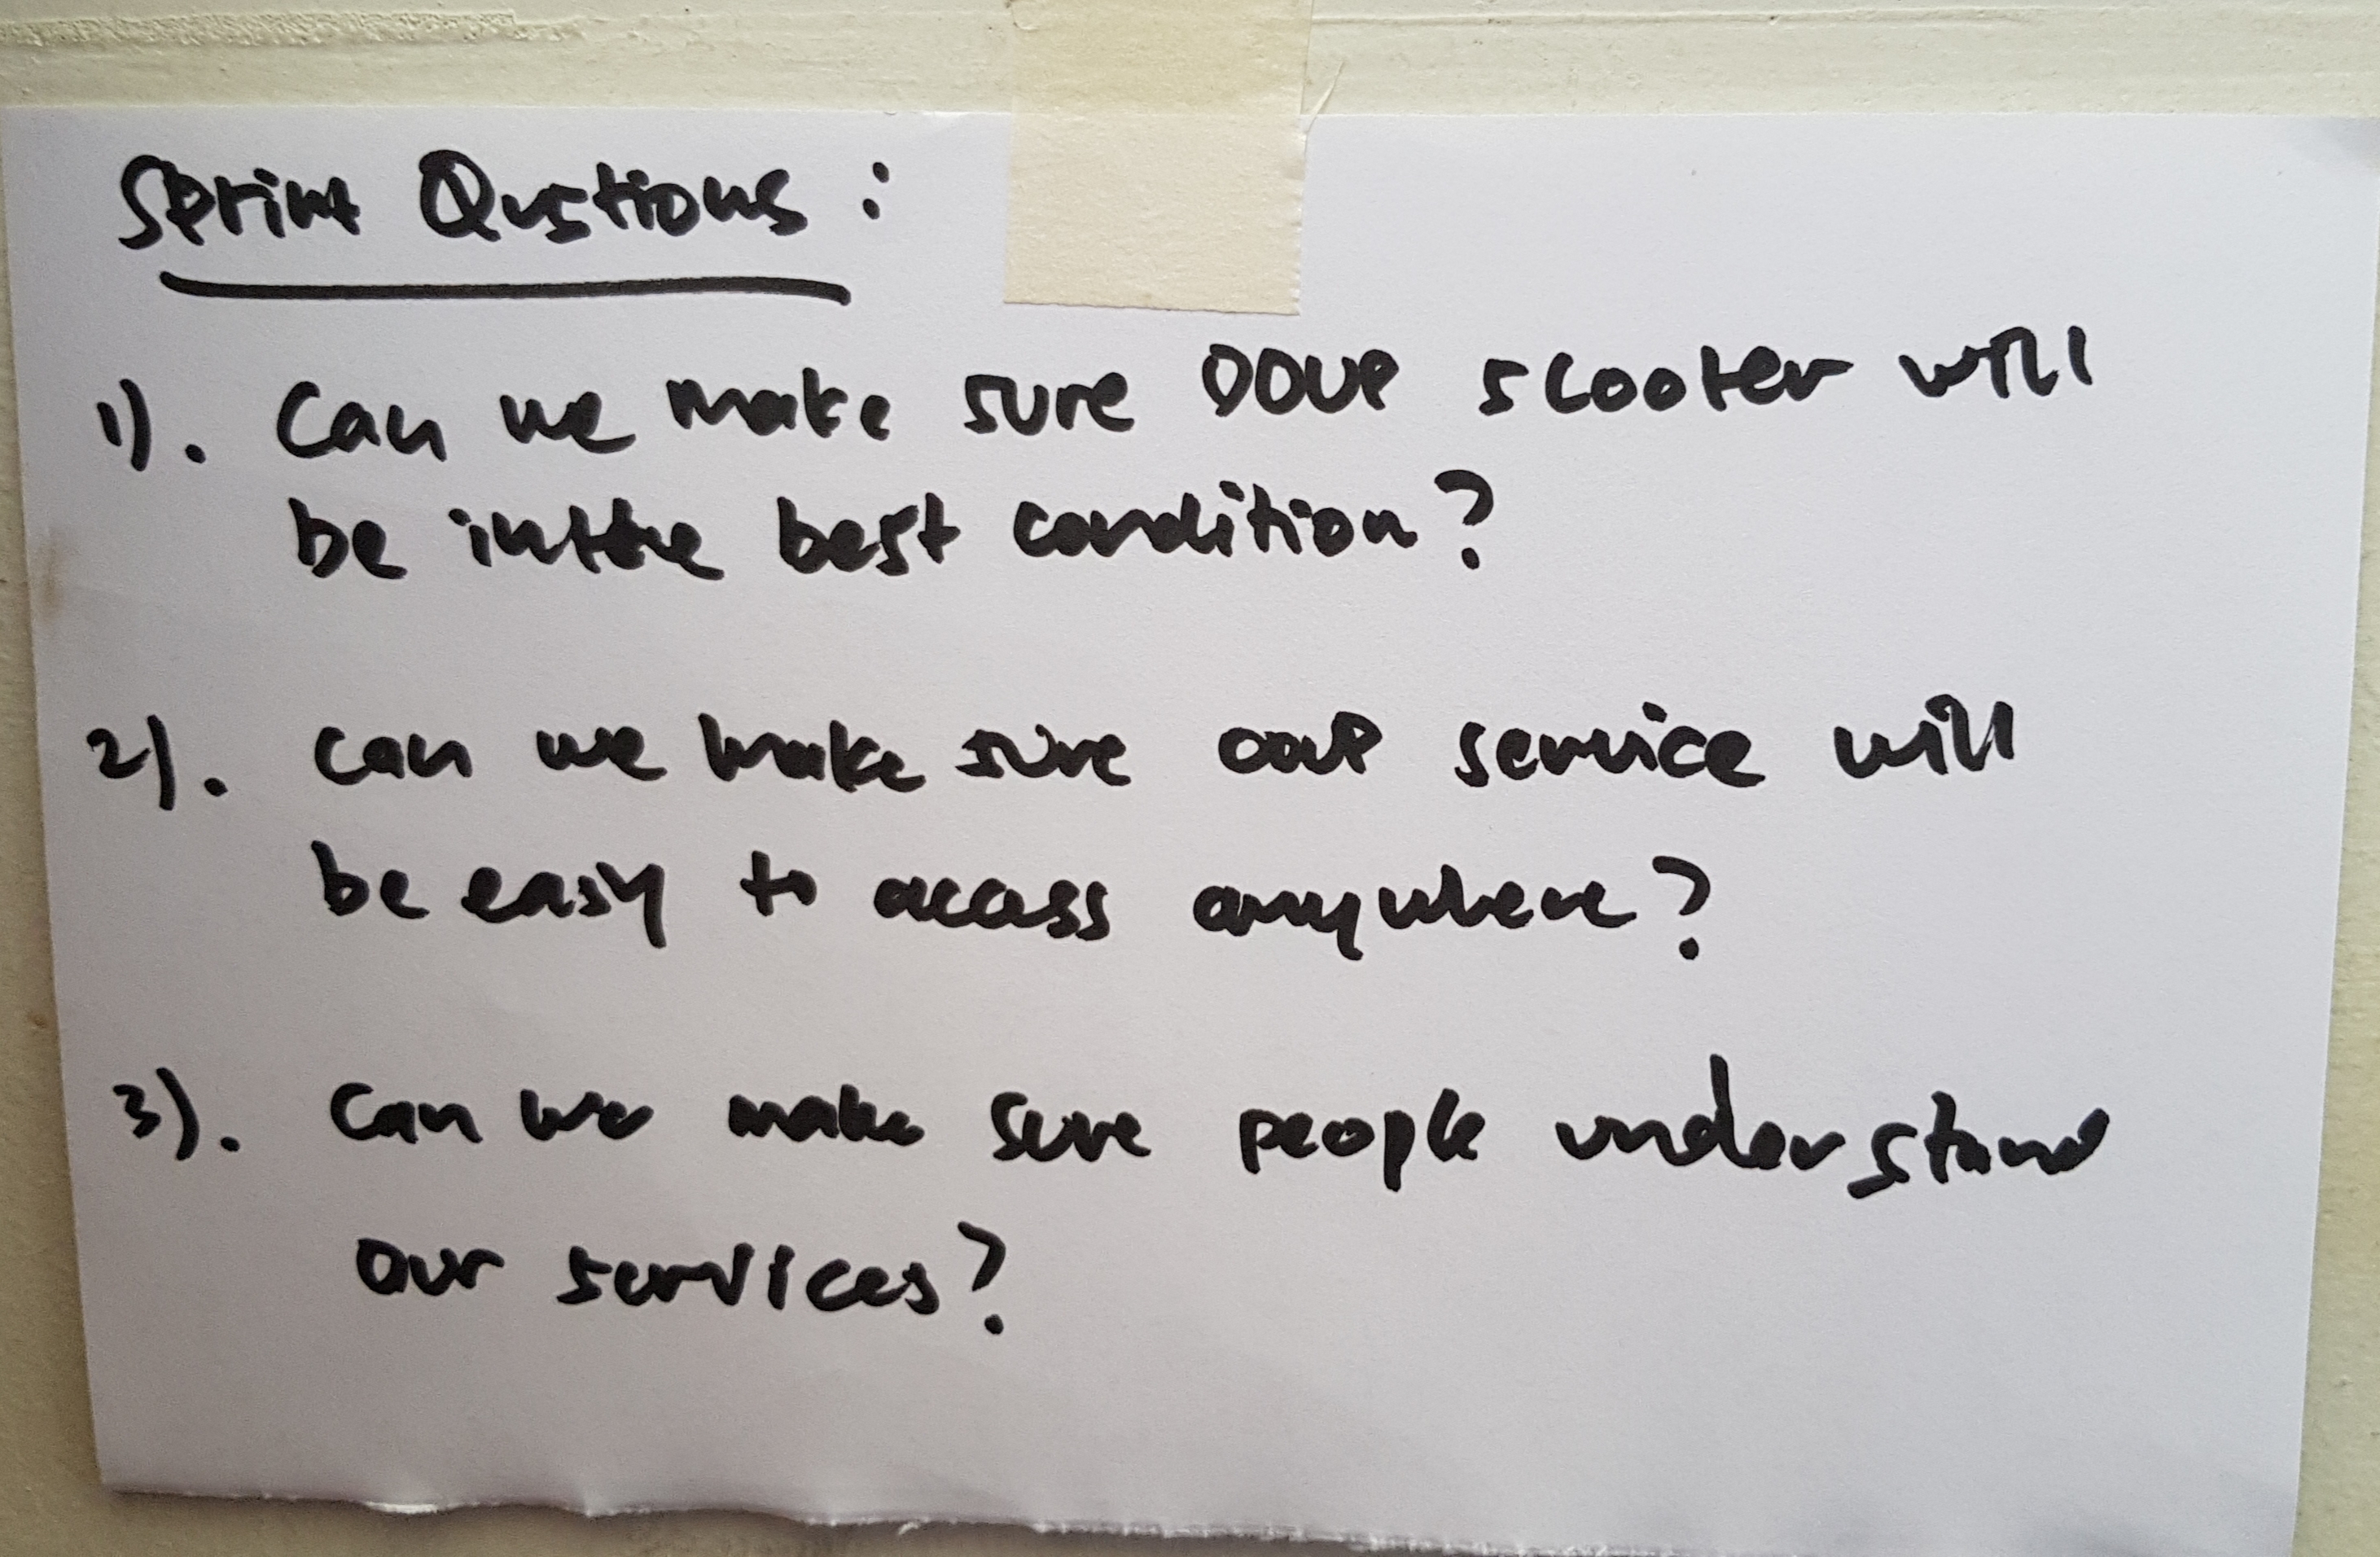 Sprint Qustions :
1). Can we make sure our scooter will
be in the best condition?
2). Can we make sure our service will
be easy to access anywhere?
3). Can we make sure people understand
our services?